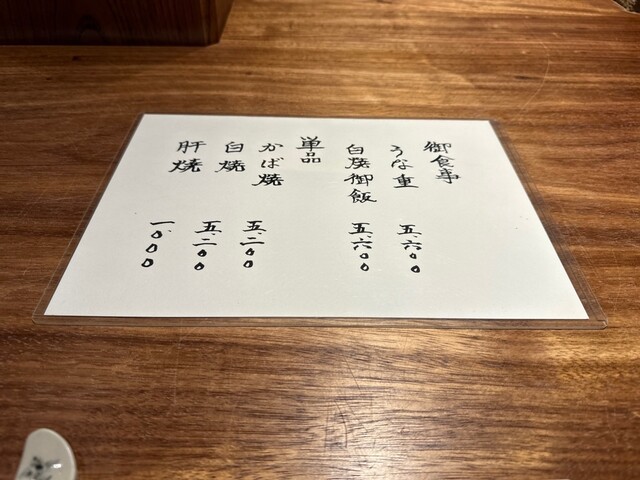 御食事
うな重 五、六〇〇
白焼御飯 五、六〇〇
単品
かば焼 五、二〇〇
白焼 五、二〇〇
肝焼 一、〇〇〇